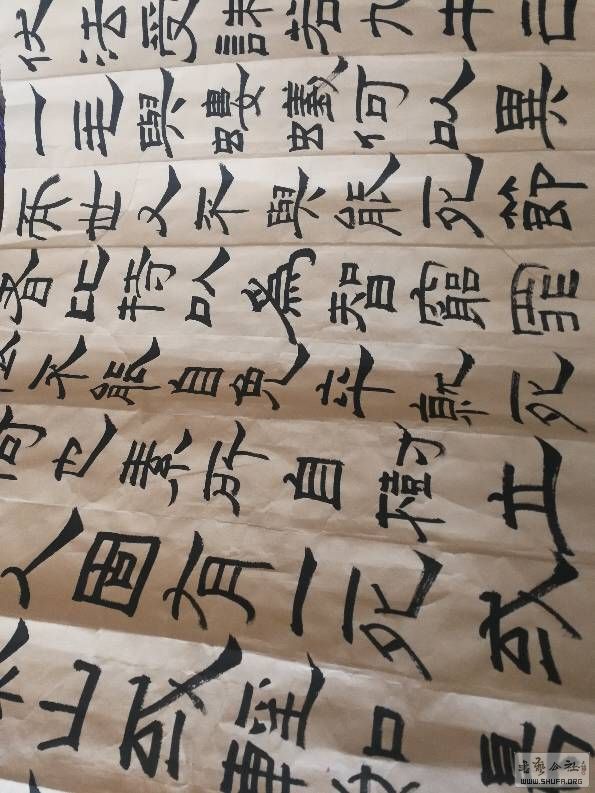 伏法受誅若九牛亡
一毛與螻蟻何以異
而世又不與能死節
者比特以為智窮罪
不能自免卒就死
何也素所自樹立
人固有一死或
山或輕如鴻
书艺公社
WWW.SHUFA.ORG